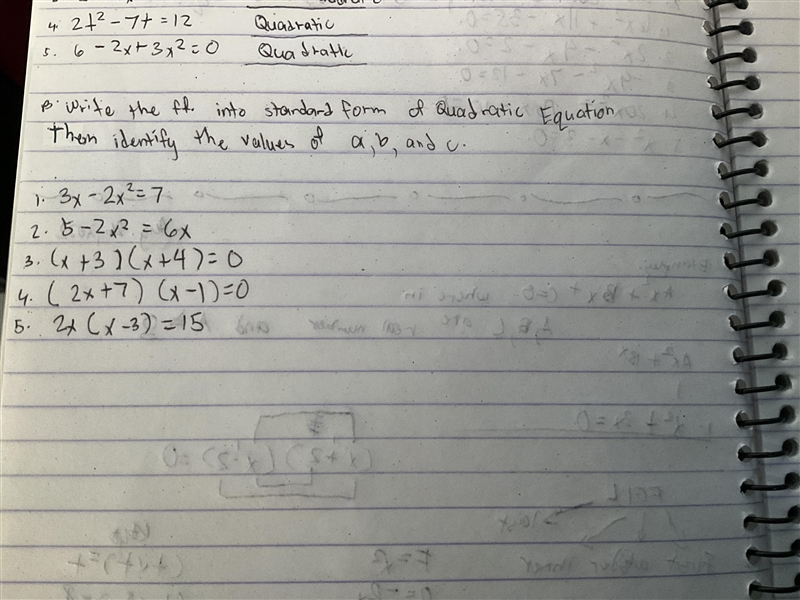 4. 2t² - 7t = 12 Quadratic
5. 6 - 2x + 3x² = 0 Quadratic
B. Write the ff. into standard form of Quadratic Equation
Then identify the values of a, b, and c.
1. 3x - 2x² = 7
2. 5 - 2x² = 6x
3. (x + 3)(x + 4) = 0
4. (2x + 7) (x - 1) = 0
5. 2x (x - 3) = 15